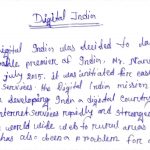 Digital India
Digital India was decided to la
able premier of India, Mr. Nare
July 2015. it was initiated for eas
Services. The Digital India mission
developing India a digital country
internet services rapidly and stronges
world wide web to rural areas
has also been a problem for a